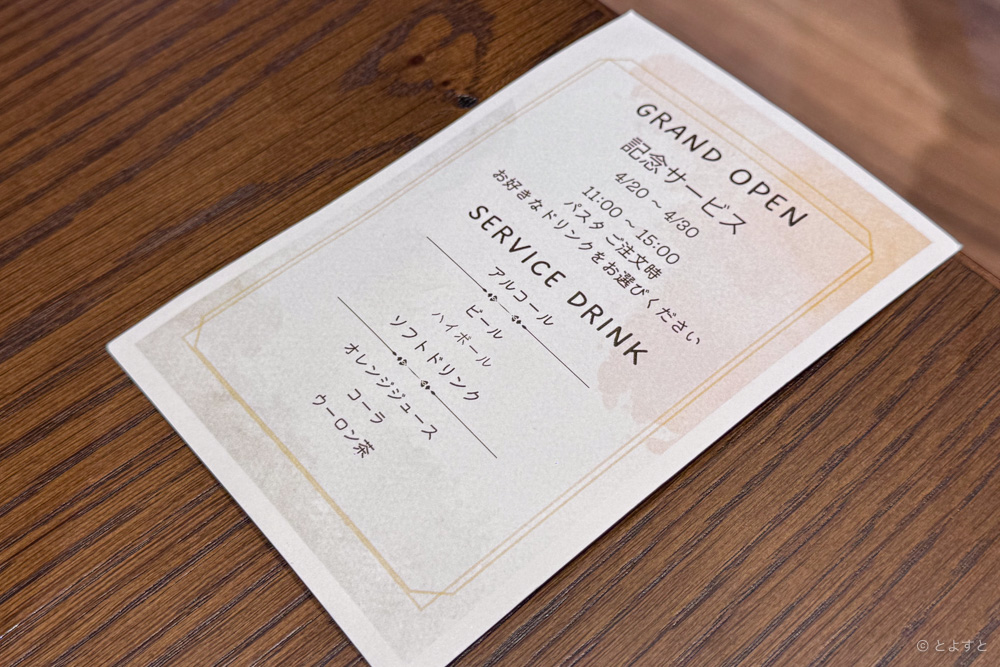 GRAND OPEN
記念サービス
4/20 ~ 4/30
11:00 ~ 15:00
パスタ ご注文時
お好きなドリンクをお選びください
SERVICE DRINK
アルコール
ビール
ハイボール
ソフトドリンク
オレンジジュース
コーラ
ウーロン茶
© とよすと